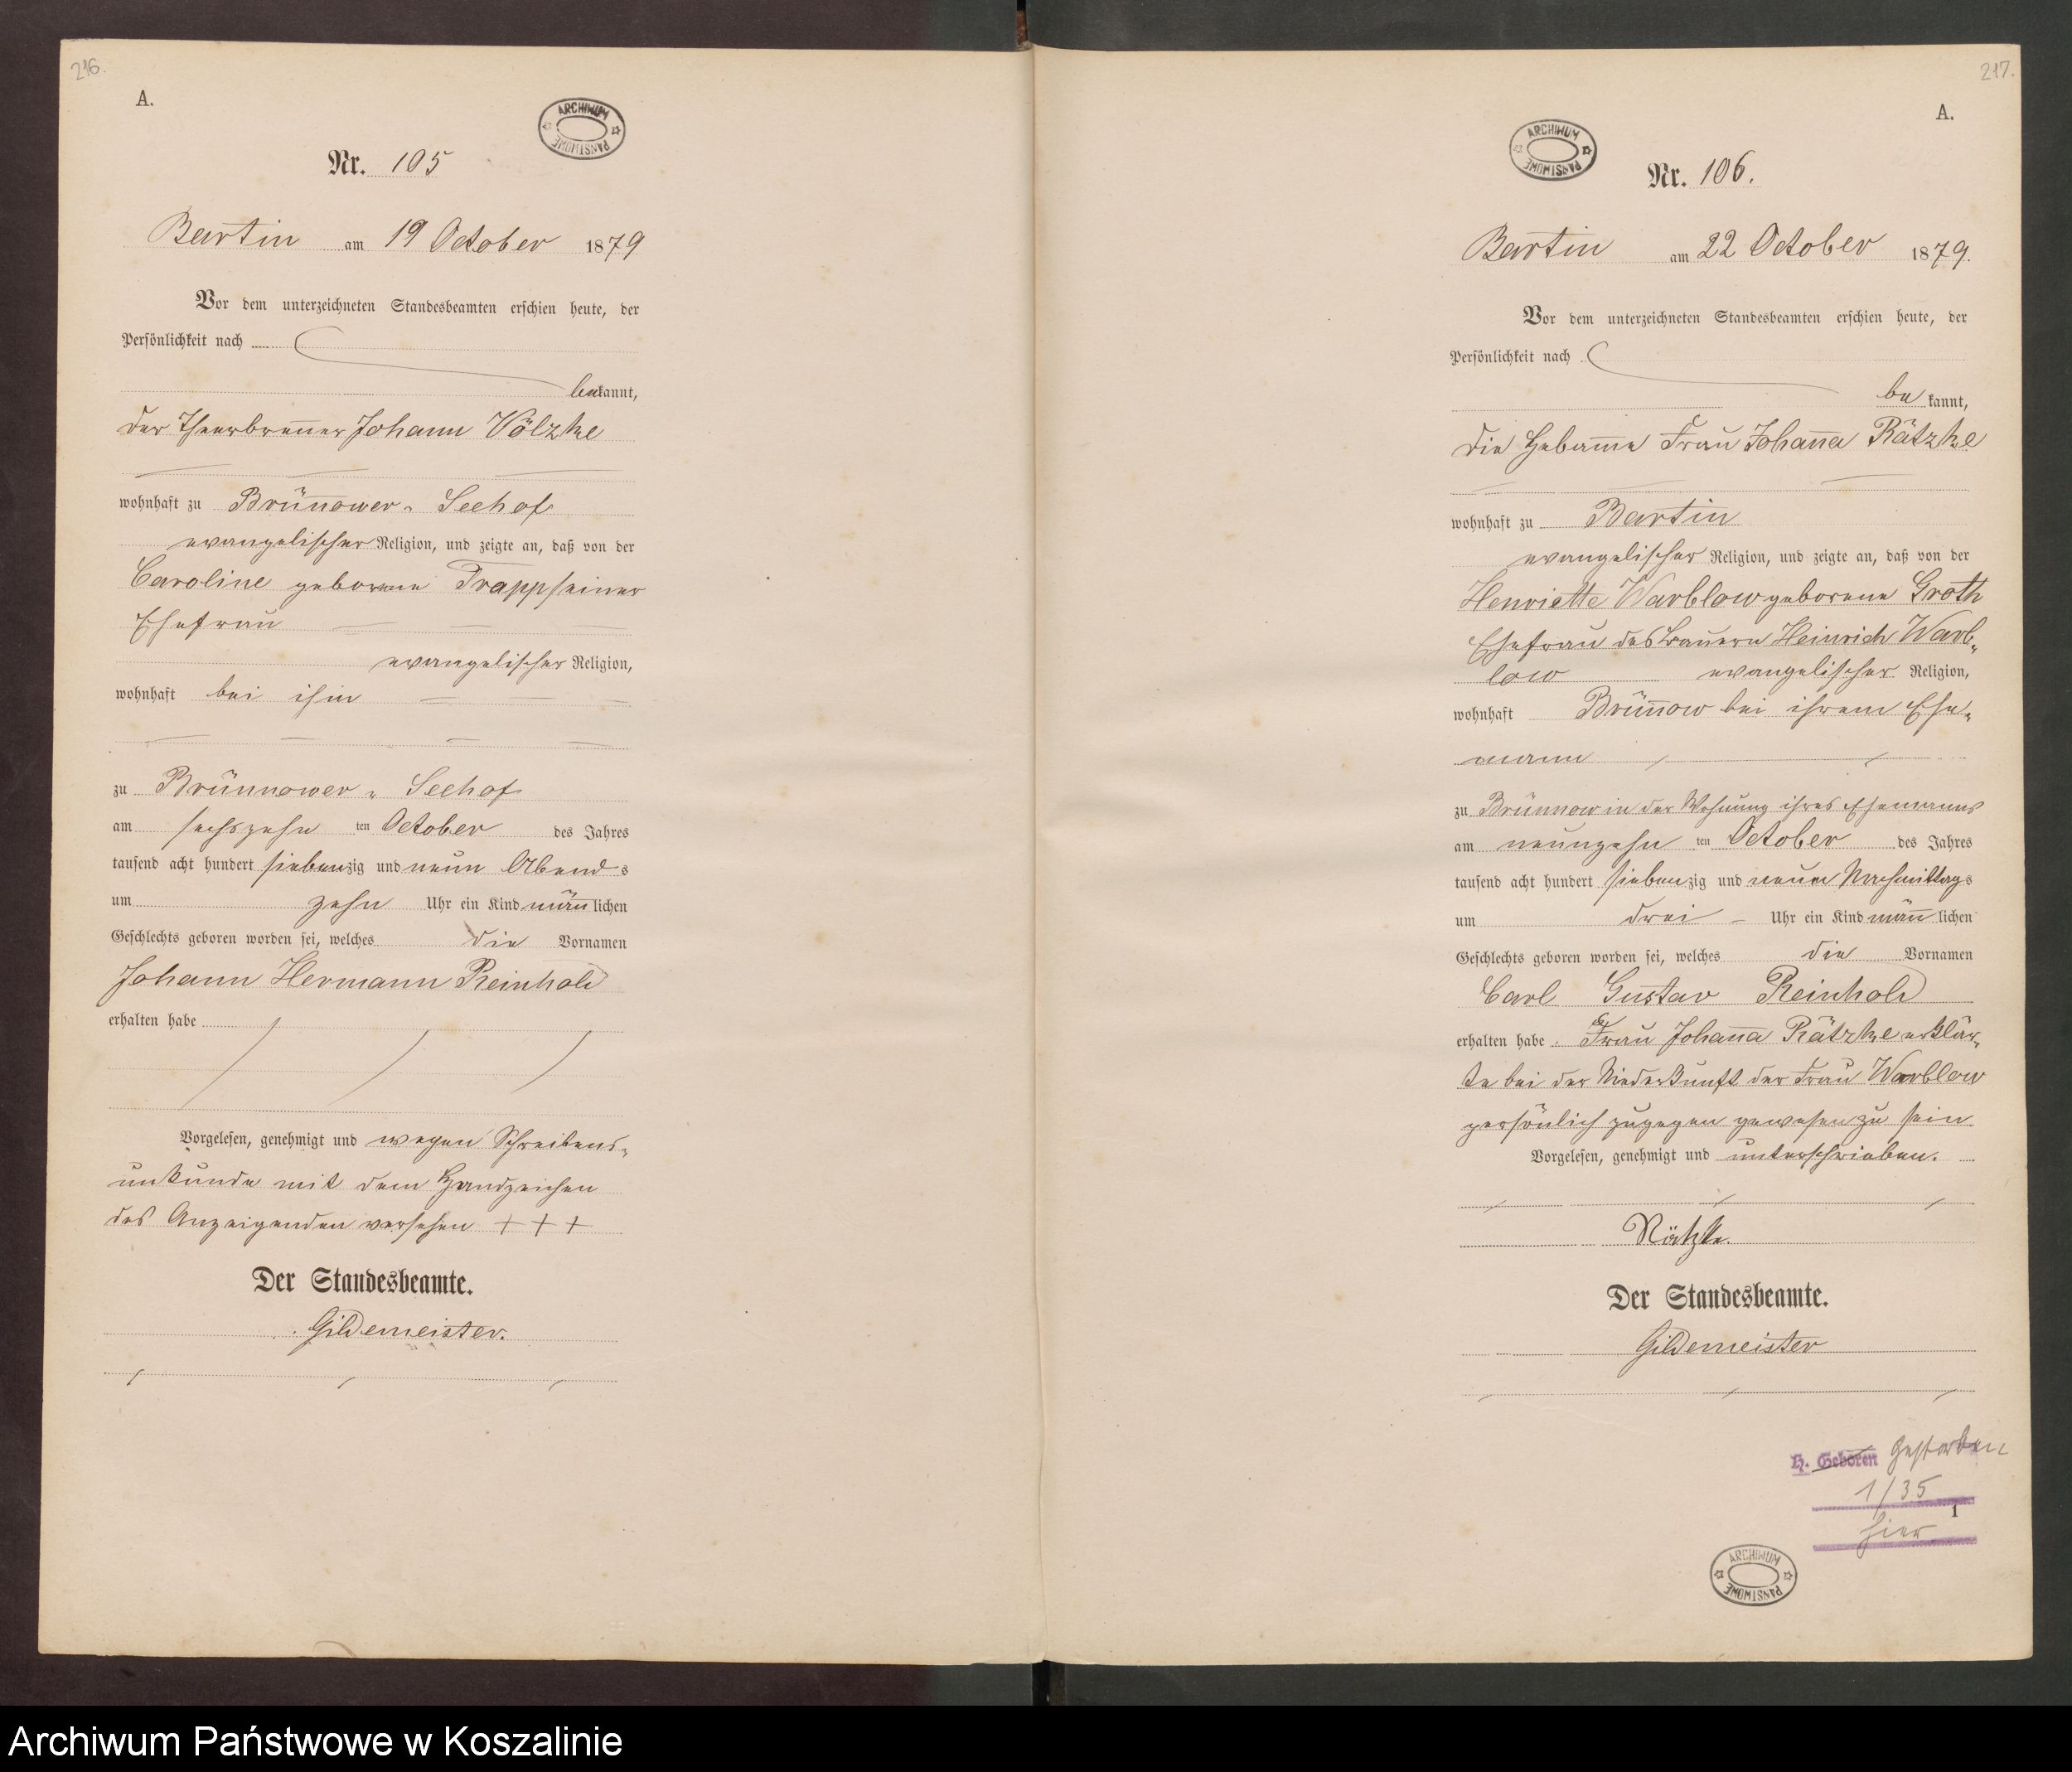 216.
A.
ARCHIWUM PAŃSTWOWE
Nr. 105
Bartin am 19 October 1879
Vor dem unterzeichneten Standesbeamten erschien heute, der
Persönlichkeit nach
bekannt,
der Theerbrenner Johann Völzke
wohnhaft zu Brünnower- Seehof
evangelischer Religion, und zeigte an, daß von der
Caroline geborene Trapp seiner
Ehefrau
evangelischer Religion,
wohnhaft bei ihm
zu Brünnower- Seehof
am sechszehn ten October des Jahres
tausend acht hundert siebenzig und neun Abends
um zehn Uhr ein Kind männlichen
Geschlechts geboren worden sei, welches die Vornamen
Johann Hermann Reinhold
erhalten habe
Vorgelesen, genehmigt und wegen Schreibens-
unkunde mit dem Handzeichen
des Anzeigenden versehen + + +
Der Standesbeamte.
Gildemeister.
217.
A.
ARCHIWUM PAŃSTWOWE
Nr. 106.
Bartin am 22 October 1879.
Vor dem unterzeichneten Standesbeamten erschien heute, der
Persönlichkeit nach
bekannt,
die Hebamme Frau Johanna Rätzke
wohnhaft zu Bartin
evangelischer Religion, und zeigte an, daß von der
Henriette Warblow geborene Groth
Ehefrau des Bauern Heinrich Warb-
low evangelischer Religion,
wohnhaft Brünnow bei ihrem Ehe-
mann
zu Brünnow in der Wohnung ihres Ehemanns
am neunzehn ten October des Jahres
tausend acht hundert siebenzig und neun Nachmittags
um drei Uhr ein Kind männlichen
Geschlechts geboren worden sei, welches die Vornamen
Carl Gustav Reinhold
erhalten habe. Frau Johanna Rätzke erklär-
te bei der Niederkunft der Frau Warblow
persönlich zugegen gewesen zu sein
Vorgelesen, genehmigt und unterschrieben.
Rätzke.
Der Standesbeamte.
Gildemeister
H. Geboren Gestorben
1/35
1
hier
ARCHIWUM PAŃSTWOWE
Archiwum Państwowe w Koszalinie